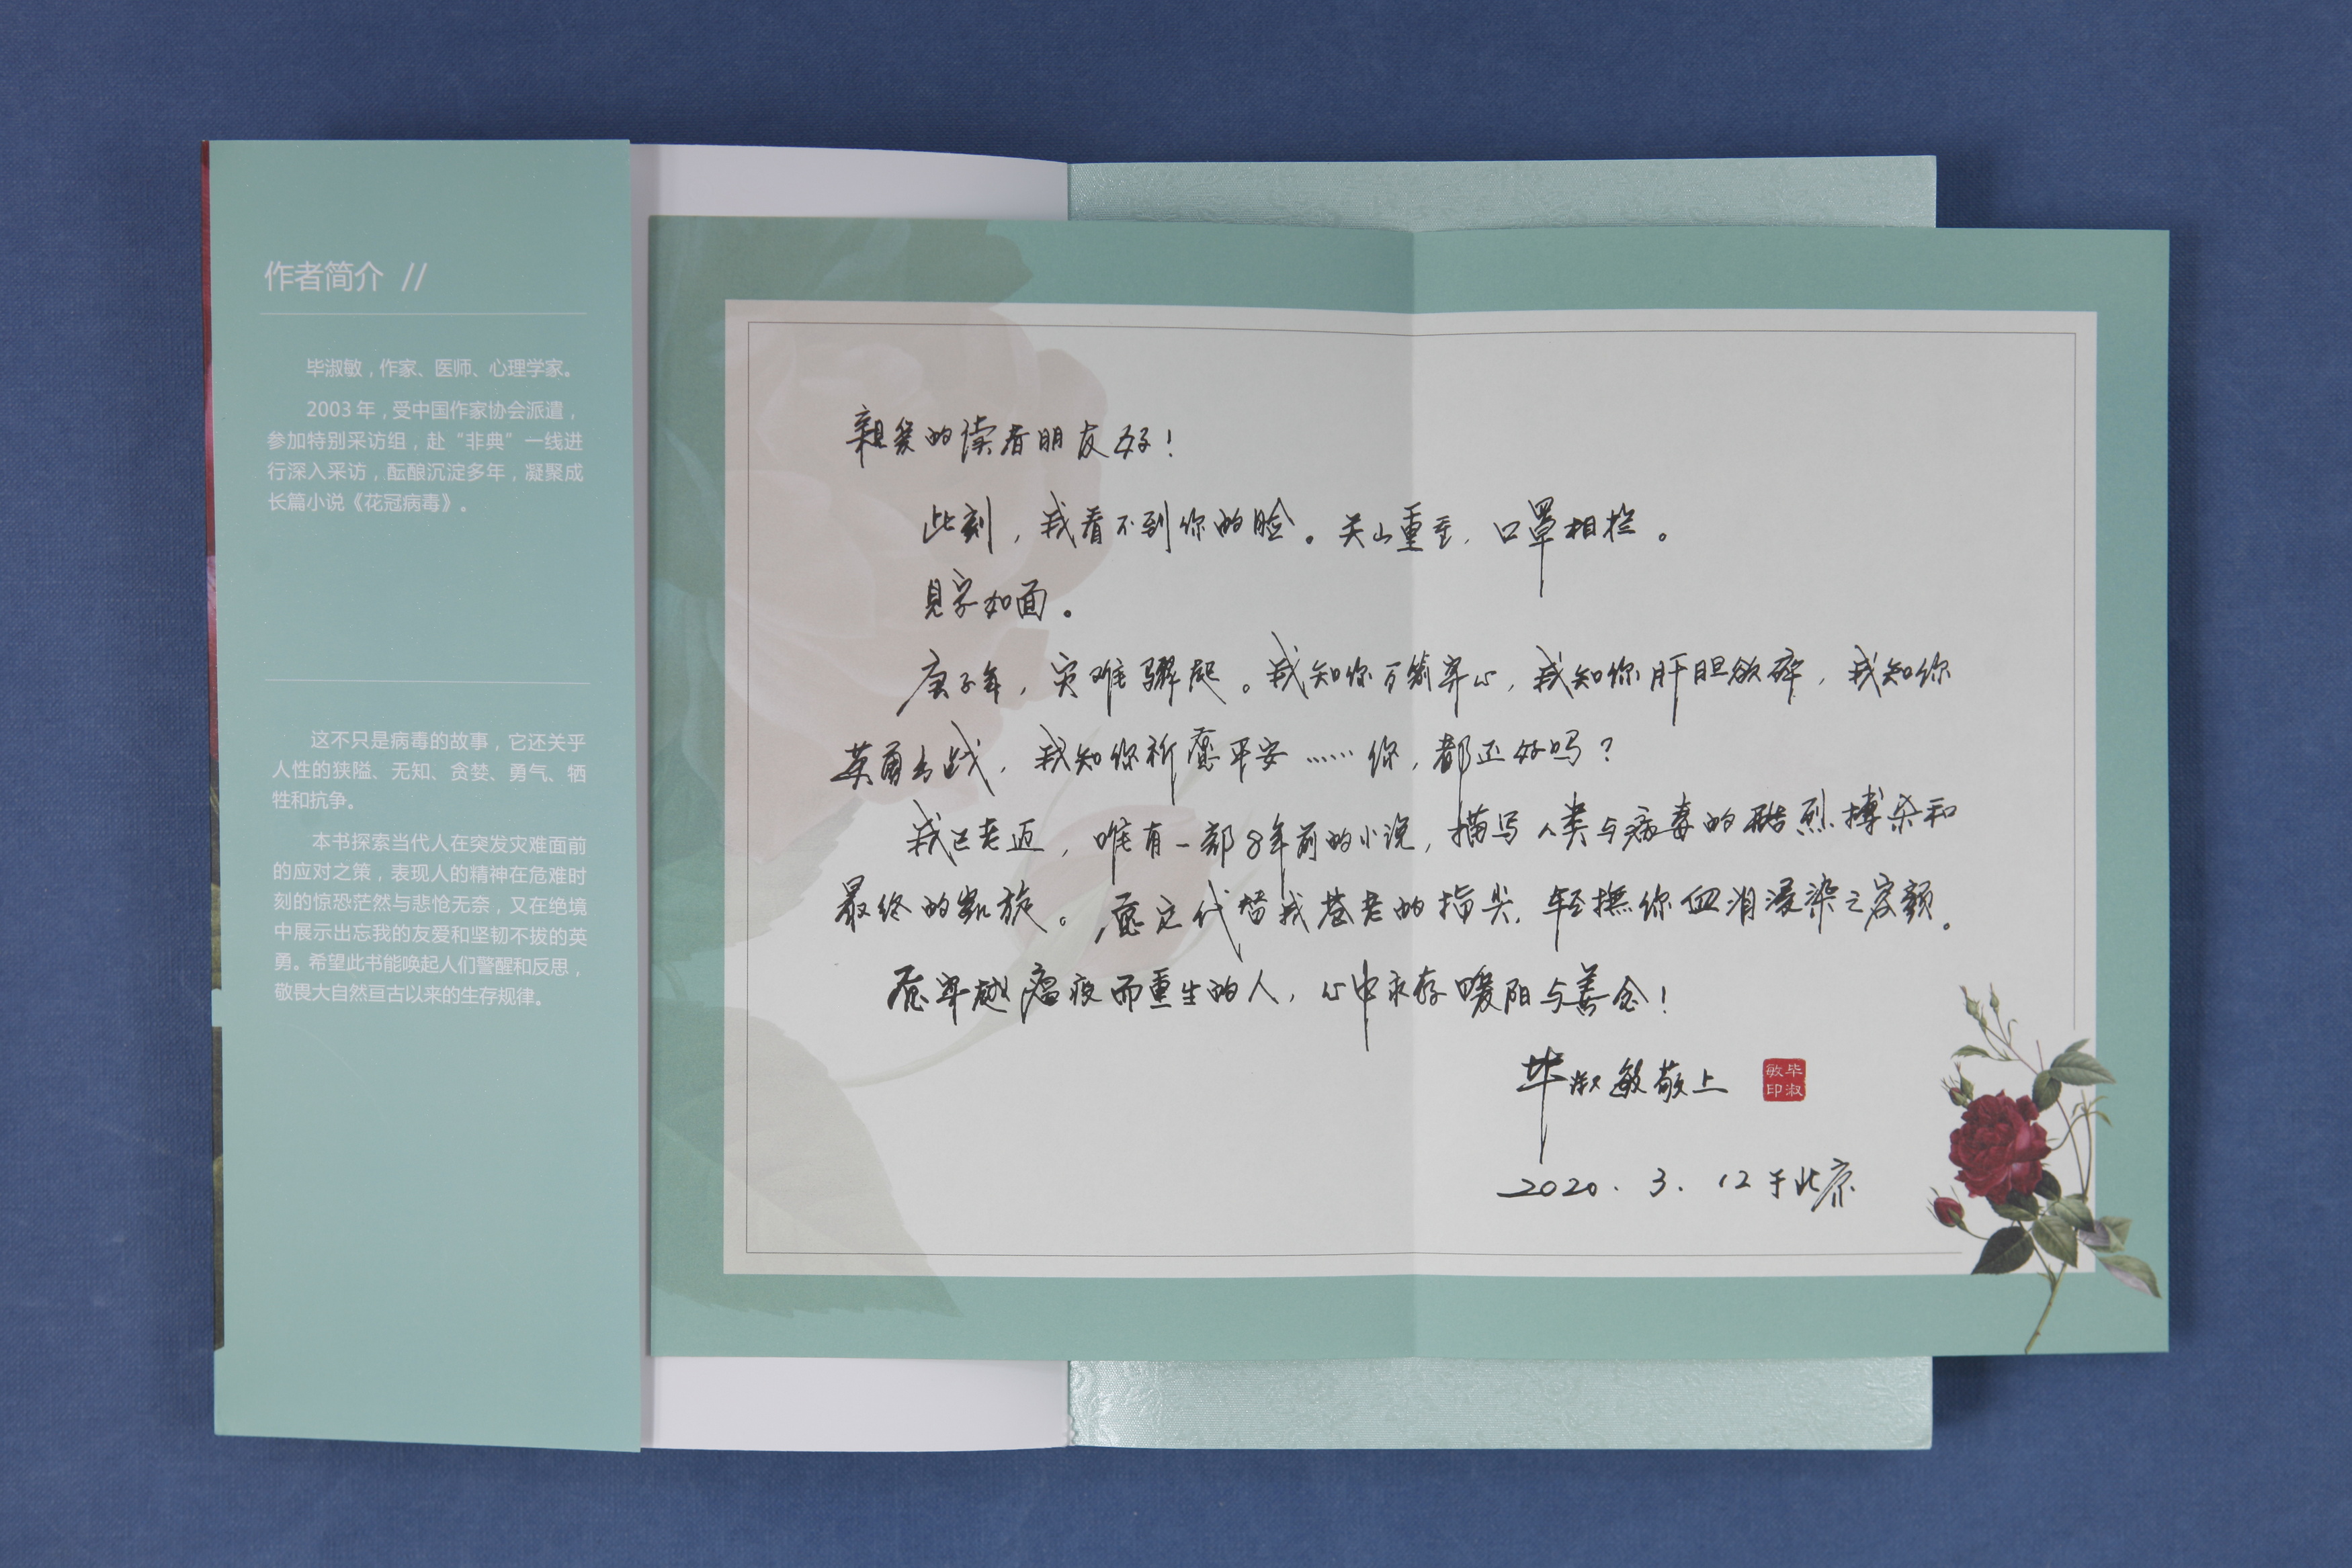 作者简介 //
毕淑敏，作家、医师、心理学家。
2003 年，受中国作家协会派遣，
参加特别采访组，赴“非典”一线进
行深入采访，酝酿沉淀多年，凝聚成
长篇小说《花冠病毒》。
这不只是病毒的故事，它还关乎
人性的狭隘、无知、贪婪、勇气、牺
牲和抗争。
本书探索当代人在突发灾难面前
的应对之策，表现人的精神在危难时
刻的惊恐茫然与悲怆无奈，又在绝境
中展示出忘我的友爱和坚韧不拔的英
勇。希望此书能唤起人们警醒和反思，
敬畏大自然亘古以来的生存规律。
親爱的读者朋友好！
此刻，我看不到你的脸。关山重重，口罩相拦。
見字如面。
庚子年，灾难骤起。我知你万箭穿心，我知你肝胆欲碎，我知你
英勇出战，我知你祈愿平安……你，都还好吗？
我已老迈，唯有一部8年前的小说，描写人类与病毒的酷烈搏杀和
最终的凯旋。愿它代替我苍老的指尖，轻撫你血泪浸染之容颜。
愿穿越瘟疫而重生的人，心中永存暖阳与善念！
毕淑敏敬上
毕淑敏印
2020.3.12于北京